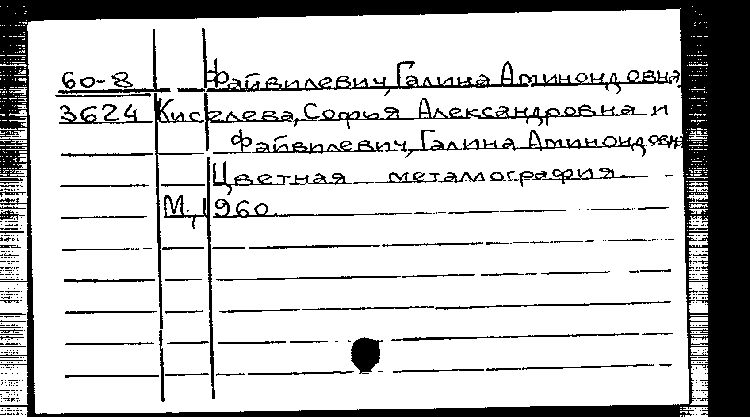 60-8 Файвилевич, Галина Аминоидовна
3624 Киселева, София Александровна и
Файвилевич, Галина Аминоидовн
Цветная металография
М., 1960